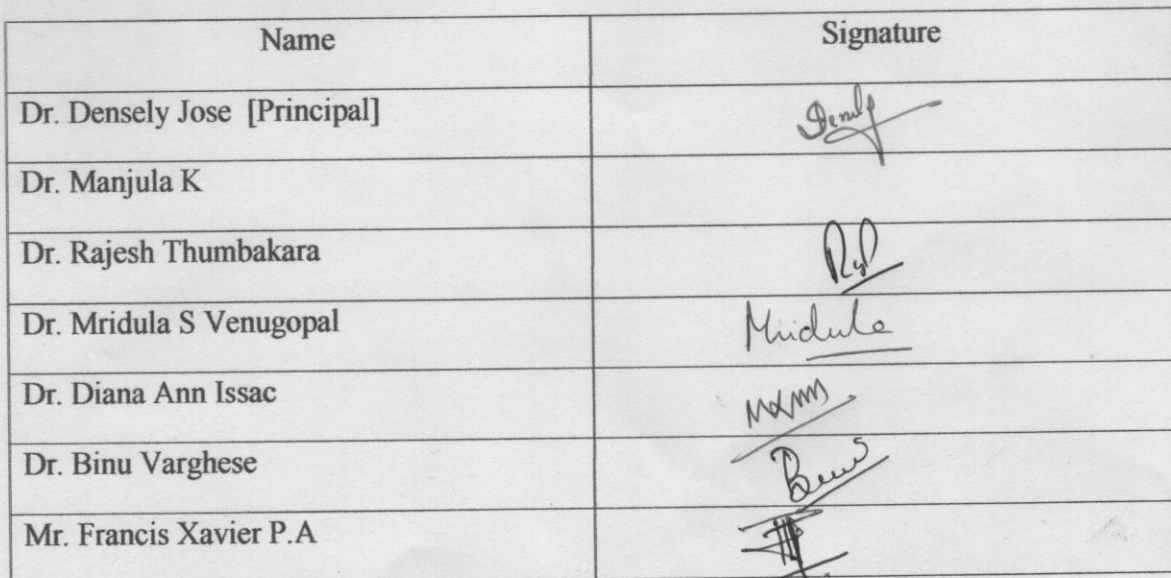 Name Signature
Dr. Densely Jose [Principal]
Dr. Manjula K
Dr. Rajesh Thumbakara
Dr. Mridula S Venugopal Mridula
Dr. Diana Ann Issac
Dr. Binu Varghese
Mr. Francis Xavier P.A